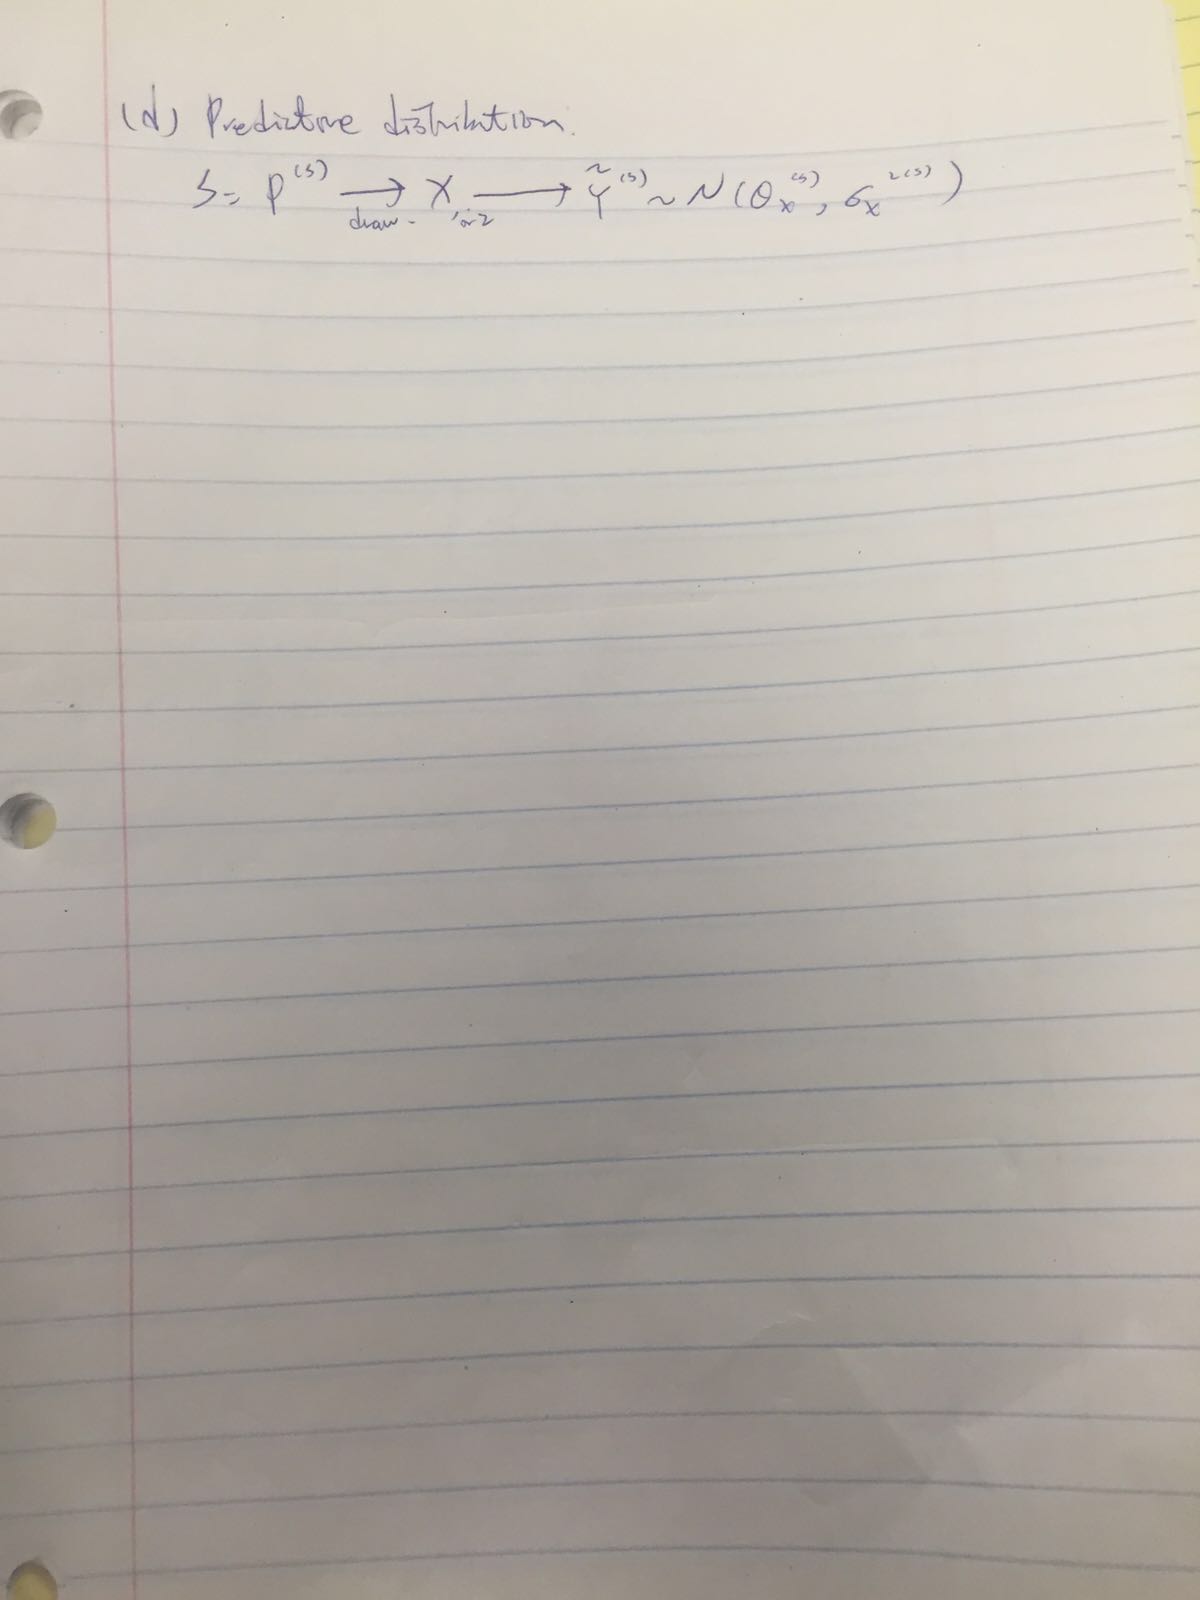 (d) Predictive distribution.
S= P^(s) → draw X 1 or 2 → Ỹ^(s) ~ N(θ_x^(s), σ_x^2(s))